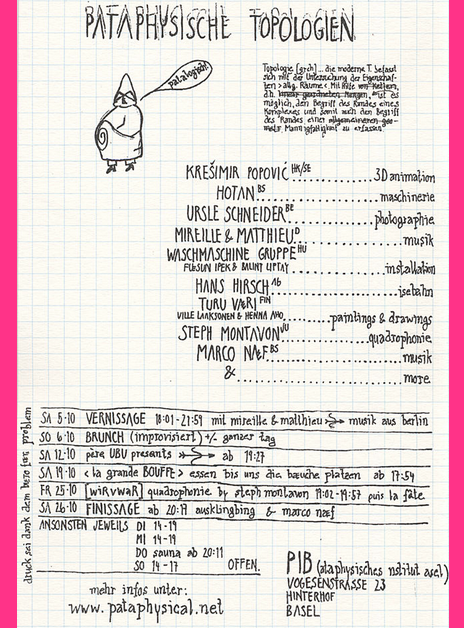 PATAPHYSISCHE TOPOLOGIEN
patalogisch!
Topologie [grch] ... die moderne T. befasst
sich mit der Untersuchung der Eigenschaf-
ten > allg. Räume <. Mit Hilfe von Ketten,
d.h. linear geordneten Mengen, ist es
möglich, den Begriff des Randes eines
Komplexes und damit auch den Begriff
des Randes einer allgemeineren geo-
metr. Mannigfaltigkeit zu erfassen
KREŠIMIR POPOVIĆ HR/SE ... 3D animation
HOTAN BS ... maschinerie
URSLE SCHNEIDER BE ... photographie
MIREILLE & MATTHIEU D ... musik
WASCHMASCHINE GRUPPE HU
FUSUN IPEK & BALINT LIPTAY ... installation
HANS HIRSCH Ab ... isebahn
TURU VÆRI FIN
VILLE LAAKSONEN & HENNA AHO ... paintings & drawings
STEPH MONTAVON JU ... quadrophonie
MARCO NÆF BS ... musik
& ... more
SA 5·10 VERNISSAGE 18:01-21:59 mit mireille & matthieu musik aus berlin
SO 6·10 BRUNCH (improvisiert) +/- ganzer tag
SA 12·10 père UBU presents ab 19:27
SA 19·10 < la grande BOUFFE > essen bis uns die bæuche platzen ab 17:54
FR 25·10 [wiRvwaR] quadrophonie by steph montavon 19:02-19:57 puis la fête
SA 26·10 FINISSAGE ab 20:19 ausklingbing & marco næf
ANSONSTEN JEWEILS DI 14-19
MI 14-19
DO sauna ab 20:11
SO 14-17 OFFEN.
druck sei dank dem hero fürs problem
mehr infos unter:
www.pataphysical.net
PIB (ataphysisches nstitut asel)
VOGESENSTRASSE 23
HINTERHOF
BASEL